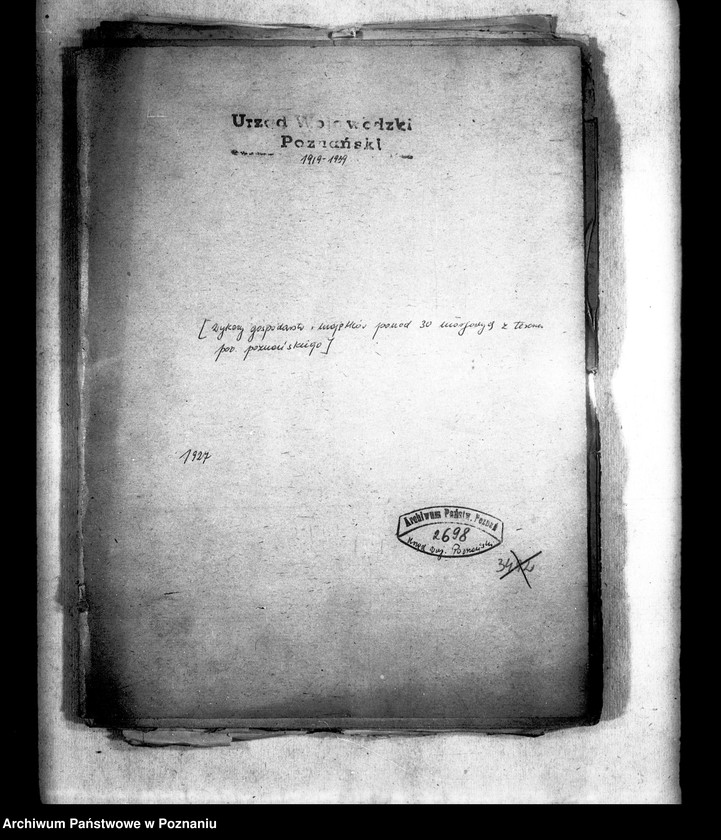 Urząd Wojewódzki
Poznański
1919-1939
[Wykazy gospodarstw i majątków ponad 30 morgowych z terenu
pow. poznańskiego]
1927
Archiwum Państw. Poznań
2698
Urząd Woj. Poznański